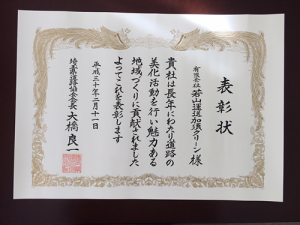 表彰状
有限会社
釜山運送加須クリーン様
貴社は長年にわたり道路の
美化活動を行い魅力ある
地域づくりに貢献されました
よってこれを表彰します
平成三十年二月十一日
埼玉県道路協会会長 大橋良一